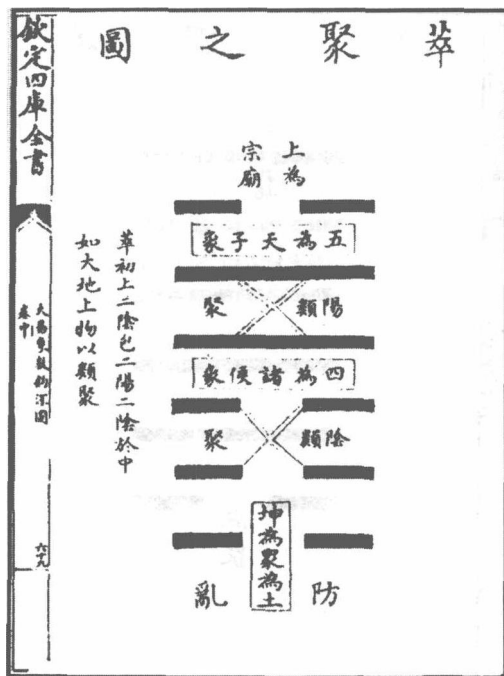 萃聚之圖
上為
宗廟
五為天子象
陽類聚
四為諸侯象
陰類聚
坤為衆為土
防亂
萃初上二陰包二陽二陰於中
如大地上物以類聚
欽定四庫全書
大易象數鈎深圖
卷中
六十九